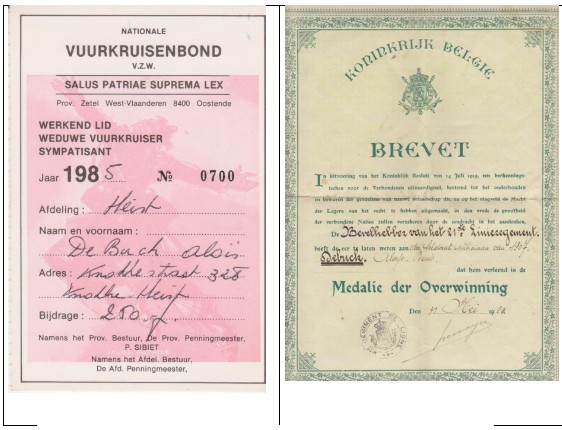 NATIONALE
VUURKRUISENBOND
V.Z.W.
SALUS PATRIAE SUPREMA LEX
Prov. Zetel West-Vlaanderen 8400 Oostende
WERKEND LID
WEDUWE VUURKRUISER
SYMPATISANT
Jaar 1985 № 0700
Afdeling : Heist
Naam en voornaam :
De Buck alois
Adres : Knokkestraat 328
Knokke Heist
Bijdrage : 250 f.
Namens het Prov. Bestuur, De Prov. Penningmeester,
P. SIBIET
Namens het Afdel. Bestuur,
De Afd. Penningmeester,
KONINKRIJK BELGIE
BREVET
In uitvoering van het Koninklijk Besluit van 14 Juli 1919, een herkennings-
teeken voor de Verbondenen uitmuntend, bestemd tot het onderhouden
der Legers van het recht te hebben uitgemaakt, in den vrede de grootheid
der verbondene Natien zullen verzekeren door de eendracht in het aandenken.
De Bevelhebber van het 21ste Linieregement.
heeft de eer te laten weten aan
Debuck,
dat hem verleend is de
Medalie der Overwinning
Den Mei